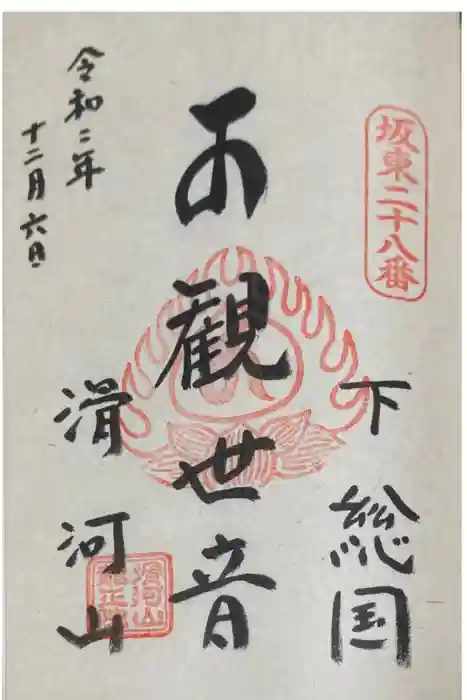 坂東二十八番
下総国
観世音
滑河山
令和二年
十二月六日
滑河山